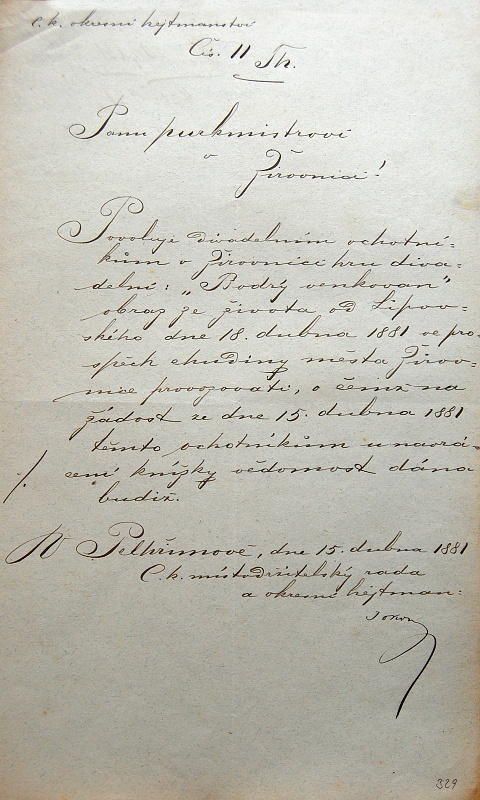 C. k. okresní hejtmanství
Čís. 11 Th.
Panu purkmistrovi
v
Žirovnici!
Povoluje divadelním ochotní-
kům v Žirovnici hru diva-
delní: „Bodrý venkovan"
obraz ze života od Lipov-
ského dne 18. dubna 1881 ve pro-
spěch chudiny města Žirov-
nice provozovati, o čemž na
žádost ze dne 15. dubna 1881
těmto ochotníkům u navrá-
/. cení knížky vědomost dána
budiž.
V Pelhřimově, dne 15. dubna 1881
C. k. místodržitelský rada
a okresní hejtman:
329